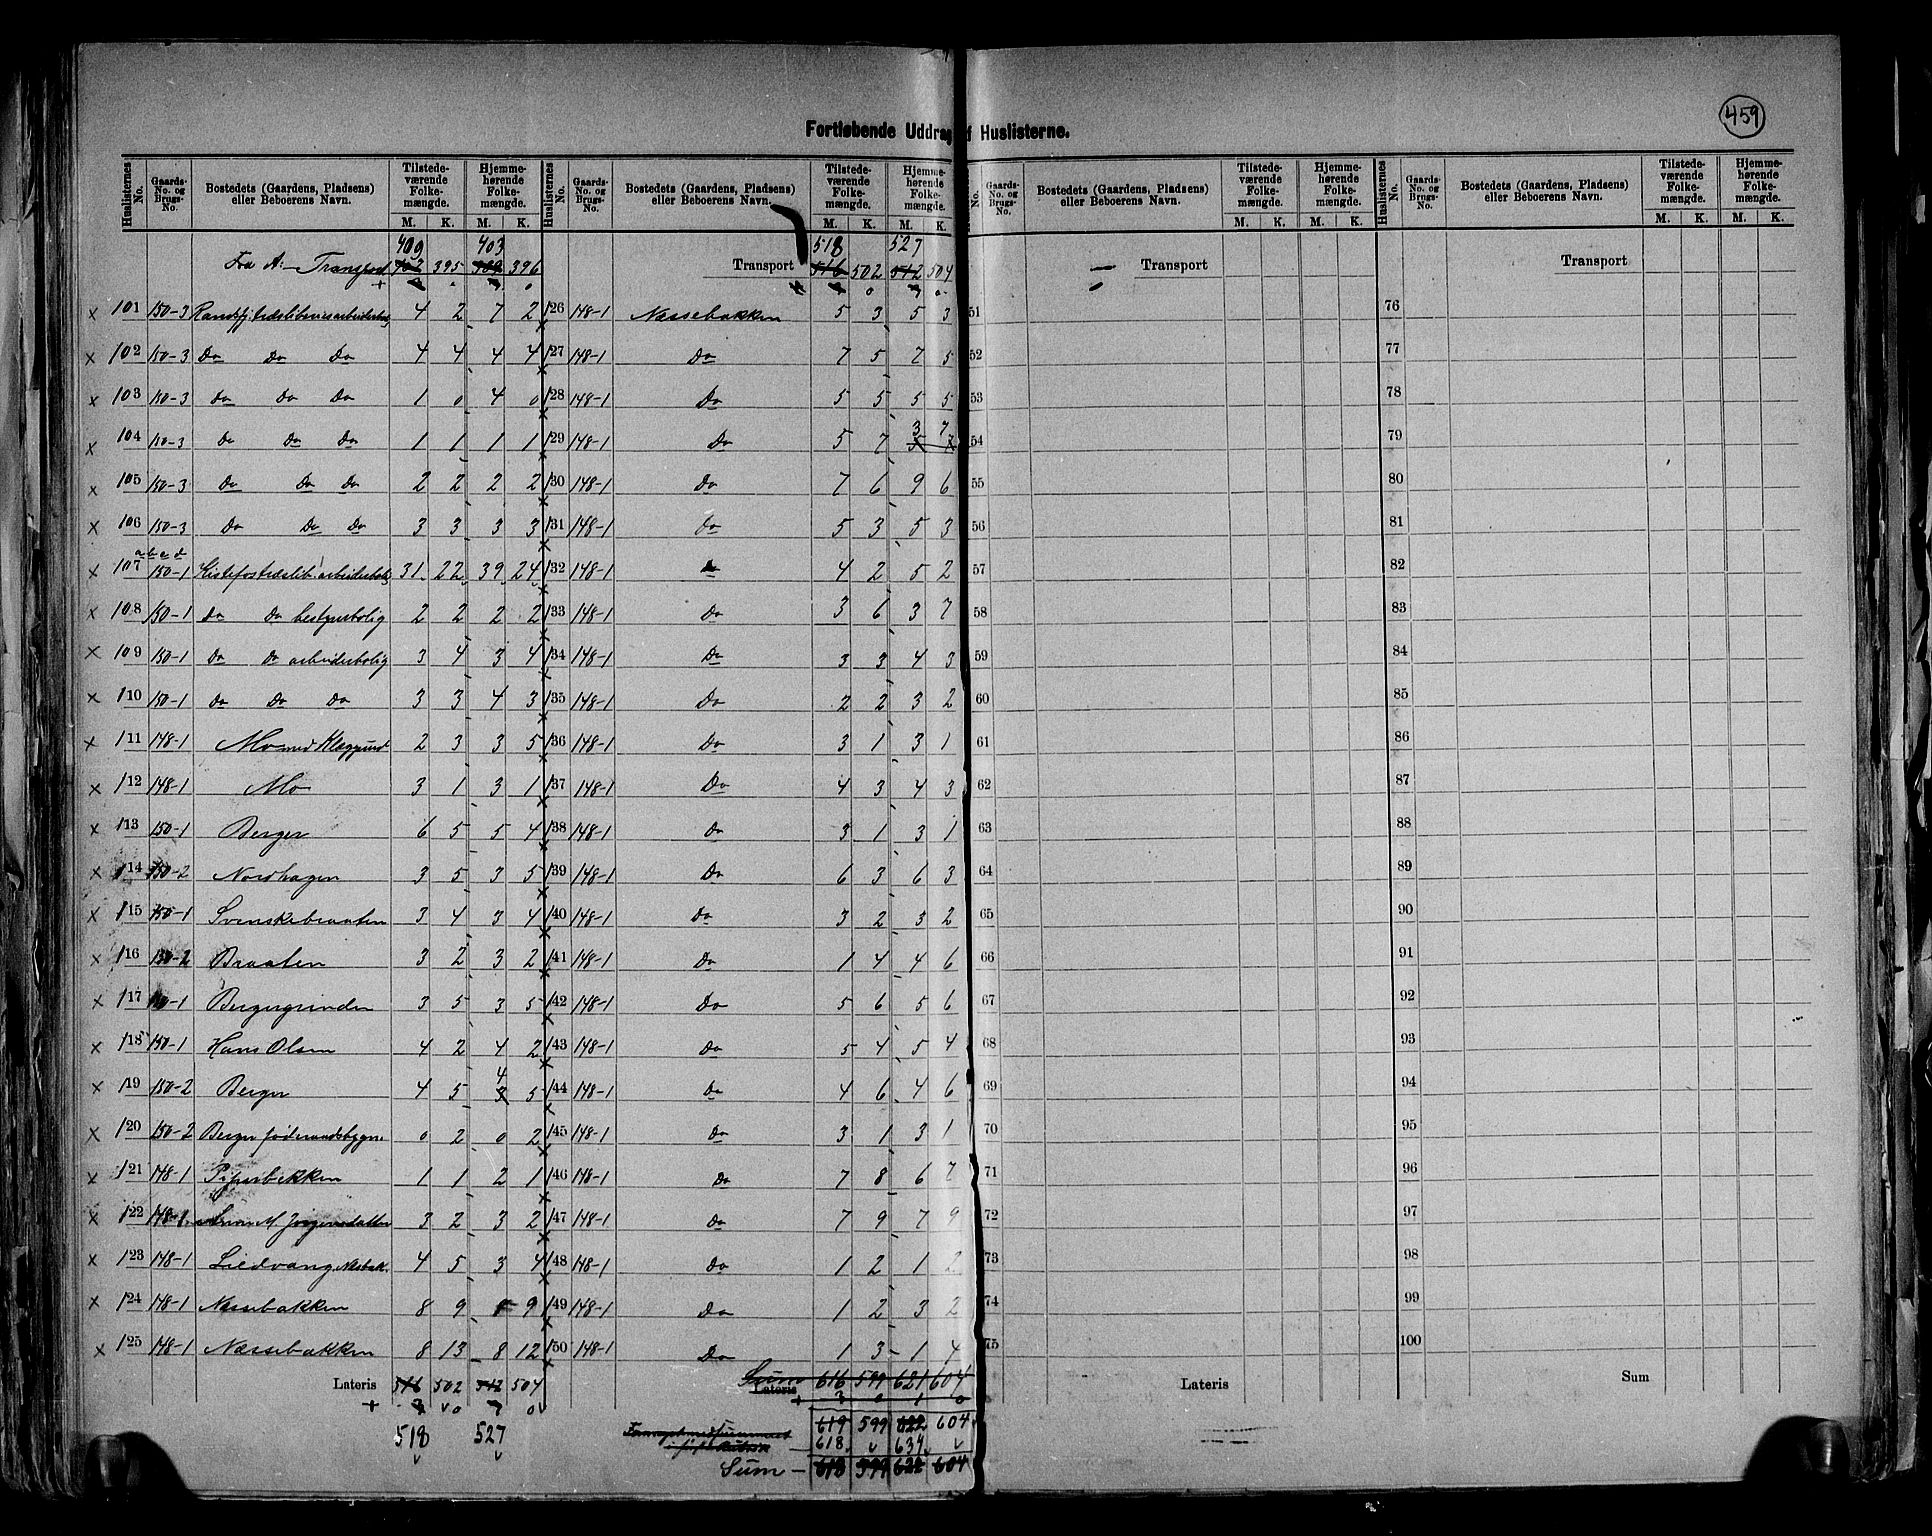 459
Fortløbende Uddrag af Huslisterne.
Huslisternes No. Gaards-No. og Brugs-No. Bostedets (Gaardens, Pladsens) eller Beboerens Navn. Tilstedeværende Folkemængde. M. K. Hjemmehørende Folkemængde. M. K.
409 403
Fra A: Transport 395 396
101 150-3 4 2 7 2
102 150-3 Do Do Do 4 4 4 4
103 150-3 Do Do Do 1 0 4 0
104 150-3 Do Do Do 1 1 1 1
105 150-3 Do Do Do 2 2 2 2
106 150-3 Do Do Do 3 3 3 3
a b c d
107 150-1 31 22 39 24
108 150-1 Do Do bestyrerbolig 2 2 2 2
109 150-1 Do Do arbeiderbolig 3 4 3 4
110 150-1 Do Do Do 3 3 4 3
111 148-1 Mo med 2 3 3 5
112 148-1 Mo 3 1 3 1
113 150-1 Berger 6 5 5 4
114 150-2 Nordhagen 3 5 3 5
115 150-1 Svenskebraaten 3 4 3 4
116 150-2 Braaten 3 2 3 2
117 150-1 Bergergrinden 3 5 3 5
118 150-1 Hans Olsen 4 2 4 2
119 150-2 Berger 4 5 4 5
120 150-2 Berger føderaadsbygn. 0 2 0 2
121 148-1 Piperbakken 1 1 2 1
122 148-1 3 2 3 2
123 148-1 4 5 3 4
124 148-1 Næssebakken 8 9 9
125 148-1 Næssebakken 8 13 8 12
Lateris 516 502 512 504
518 527
Huslisternes No. Gaards-No. og Brugs-No. Bostedets (Gaardens, Pladsens) eller Beboerens Navn. Tilstedeværende Folkemængde. M. K. Hjemmehørende Folkemængde. M. K.
518 527
Transport 516 502 512 504
126 148-1 Næssebakken 5 3 5 3
127 148-1 Do 7 5 7 5
128 148-1 Do 5 5 5 5
129 148-1 Do 5 7 3 7
130 148-1 Do 7 6 9 6
131 148-1 Do 5 3 5 3
132 148-1 4 2 5 2
133 148-1 Do 3 6 3 7
134 148-1 Do 3 3 4 3
135 148-1 Do 2 2 3 2
136 148-1 Do 3 1 3 1
137 148-1 Do 4 3 4 3
138 148-1 Do 3 1 3 1
139 148-1 Do 6 3 6 3
140 148-1 Do 3 2 3 2
141 148-1 Do 1 4 4 6
142 148-1 Do 5 6 5 6
143 148-1 Do 5 4 5 4
144 148-1 Do 4 6 4 6
145 148-1 Do 3 1 3 1
146 148-1 Do 7 8 6 7
147 148-1 Do 7 9 7 9
148 148-1 Do 1 2 1 2
149 148-1 Do 1 2 3 2
150 148-1 Do 1 3 1 4
Sum Lateris 616 599 621 604
+ 3 0 1 0
619 599 622 604
618 634
Sum 618 599 622 604
No. Gaards-No. og Brugs-No. Bostedets (Gaardens, Pladsens) eller Beboerens Navn. Tilstedeværende Folkemængde. M. K. Hjemmehørende Folkemængde. M. K.
Transport
51
52
53
54
55
56
57
58
59
60
61
62
63
64
65
66
67
68
69
70
71
72
73
74
75
Lateris
Huslisternes No. Gaards-No. og Brugs-No. Bostedets (Gaardens, Pladsens) eller Beboerens Navn. Tilstedeværende Folkemængde. M. K. Hjemmehørende Folkemængde. M. K.
Transport
76
77
78
79
80
81
82
83
84
85
86
87
88
89
90
91
92
93
94
95
96
97
98
99
100
Sum